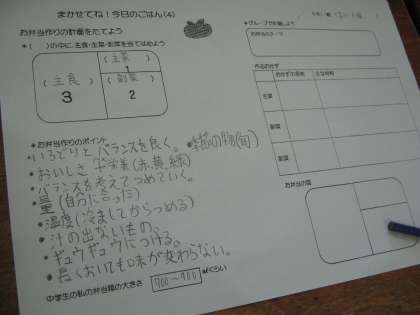 まかせてね！今日のごはん（4）
お弁当作りの計画をたてよう
＊（　）の中に、主食・主菜・副菜を当てはめよう
（主食）
3
（主菜）
1
（副菜）
2
＊お弁当作りのポイント
・いろどりとバランスを良く。 ・季節の物(旬)
・おいしさ 栄養(赤,黄,緑)
・バランスを考えてつめていく。
・量(自分に合った)
・温度(冷ましてからつめる)
・汁の出ないもの。
・ギュウギュウにつける。
・長くおいても味が変わらない。
中学生の私の弁当箱の大きさ 700〜900 mlくらい
＊グループで計画しよう
お弁当のテーマ
作るおかず
おかずの名前
主な材料
主菜
副菜
副菜
お弁当の図